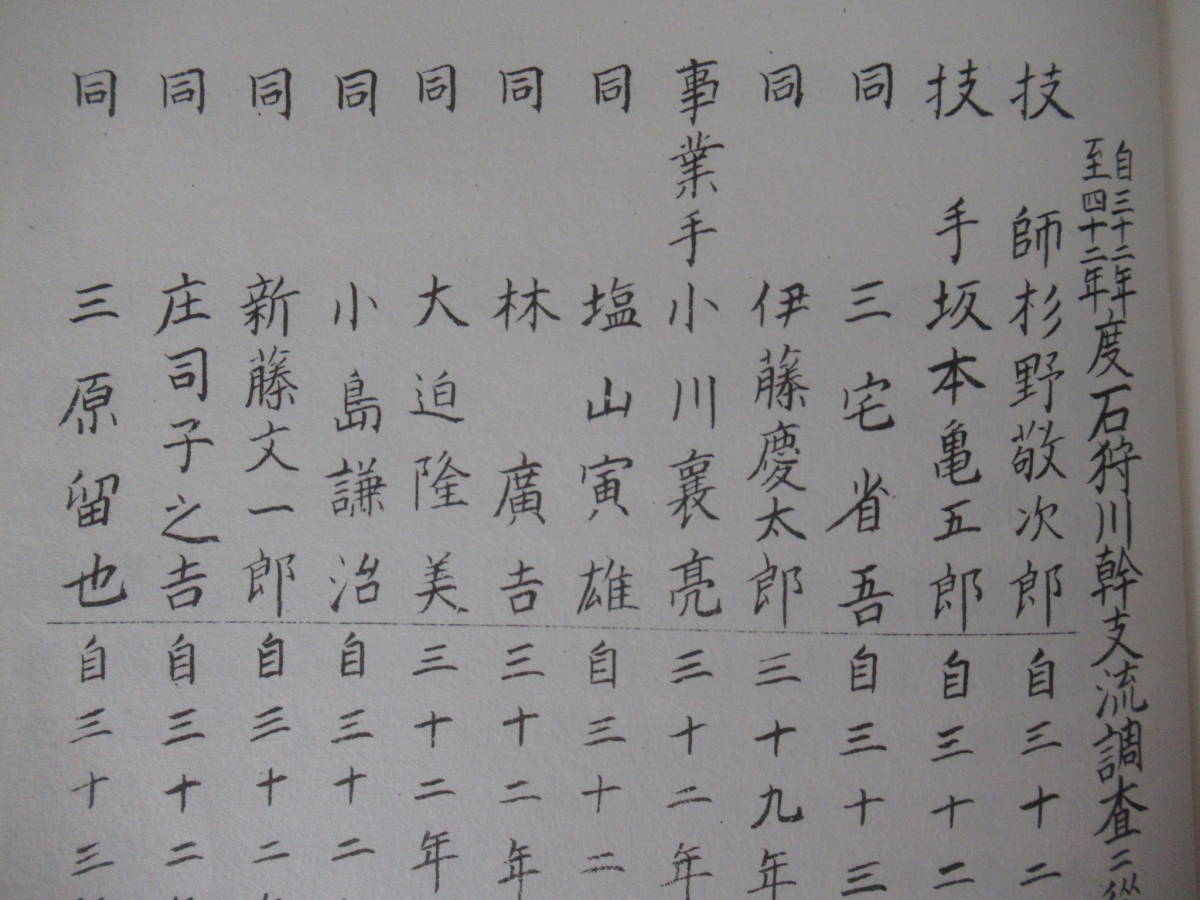 自三十二年至四十二年度石狩川幹支流調査ニ從
技師杉野敬次郎自三十二
技手坂本亀五郎自三十二
同三宅省吾自三十三
同伊藤慶太郎三十九年
事業手小川襄亮三十二年
同塩山寅雄自三十二
同林廣吉三十二年
同大迫隆美三十二年
同小島謙治自三十二
同新藤文一郎自三十二
同庄司子之吉自三十二
同三原留也自三十三